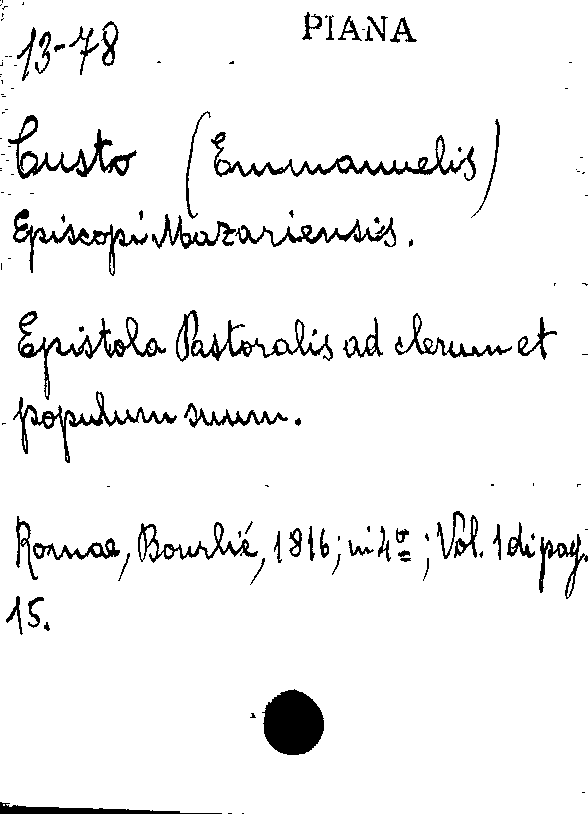 PIANA
13-78
Custo (Emmanuelis)
Episcopi Mazariensis.
Epistola Pastoralis ad clerum et
populum suum.
Romae, Bourlié, 1816; in 4º; Vol. 1 di pag.
15.